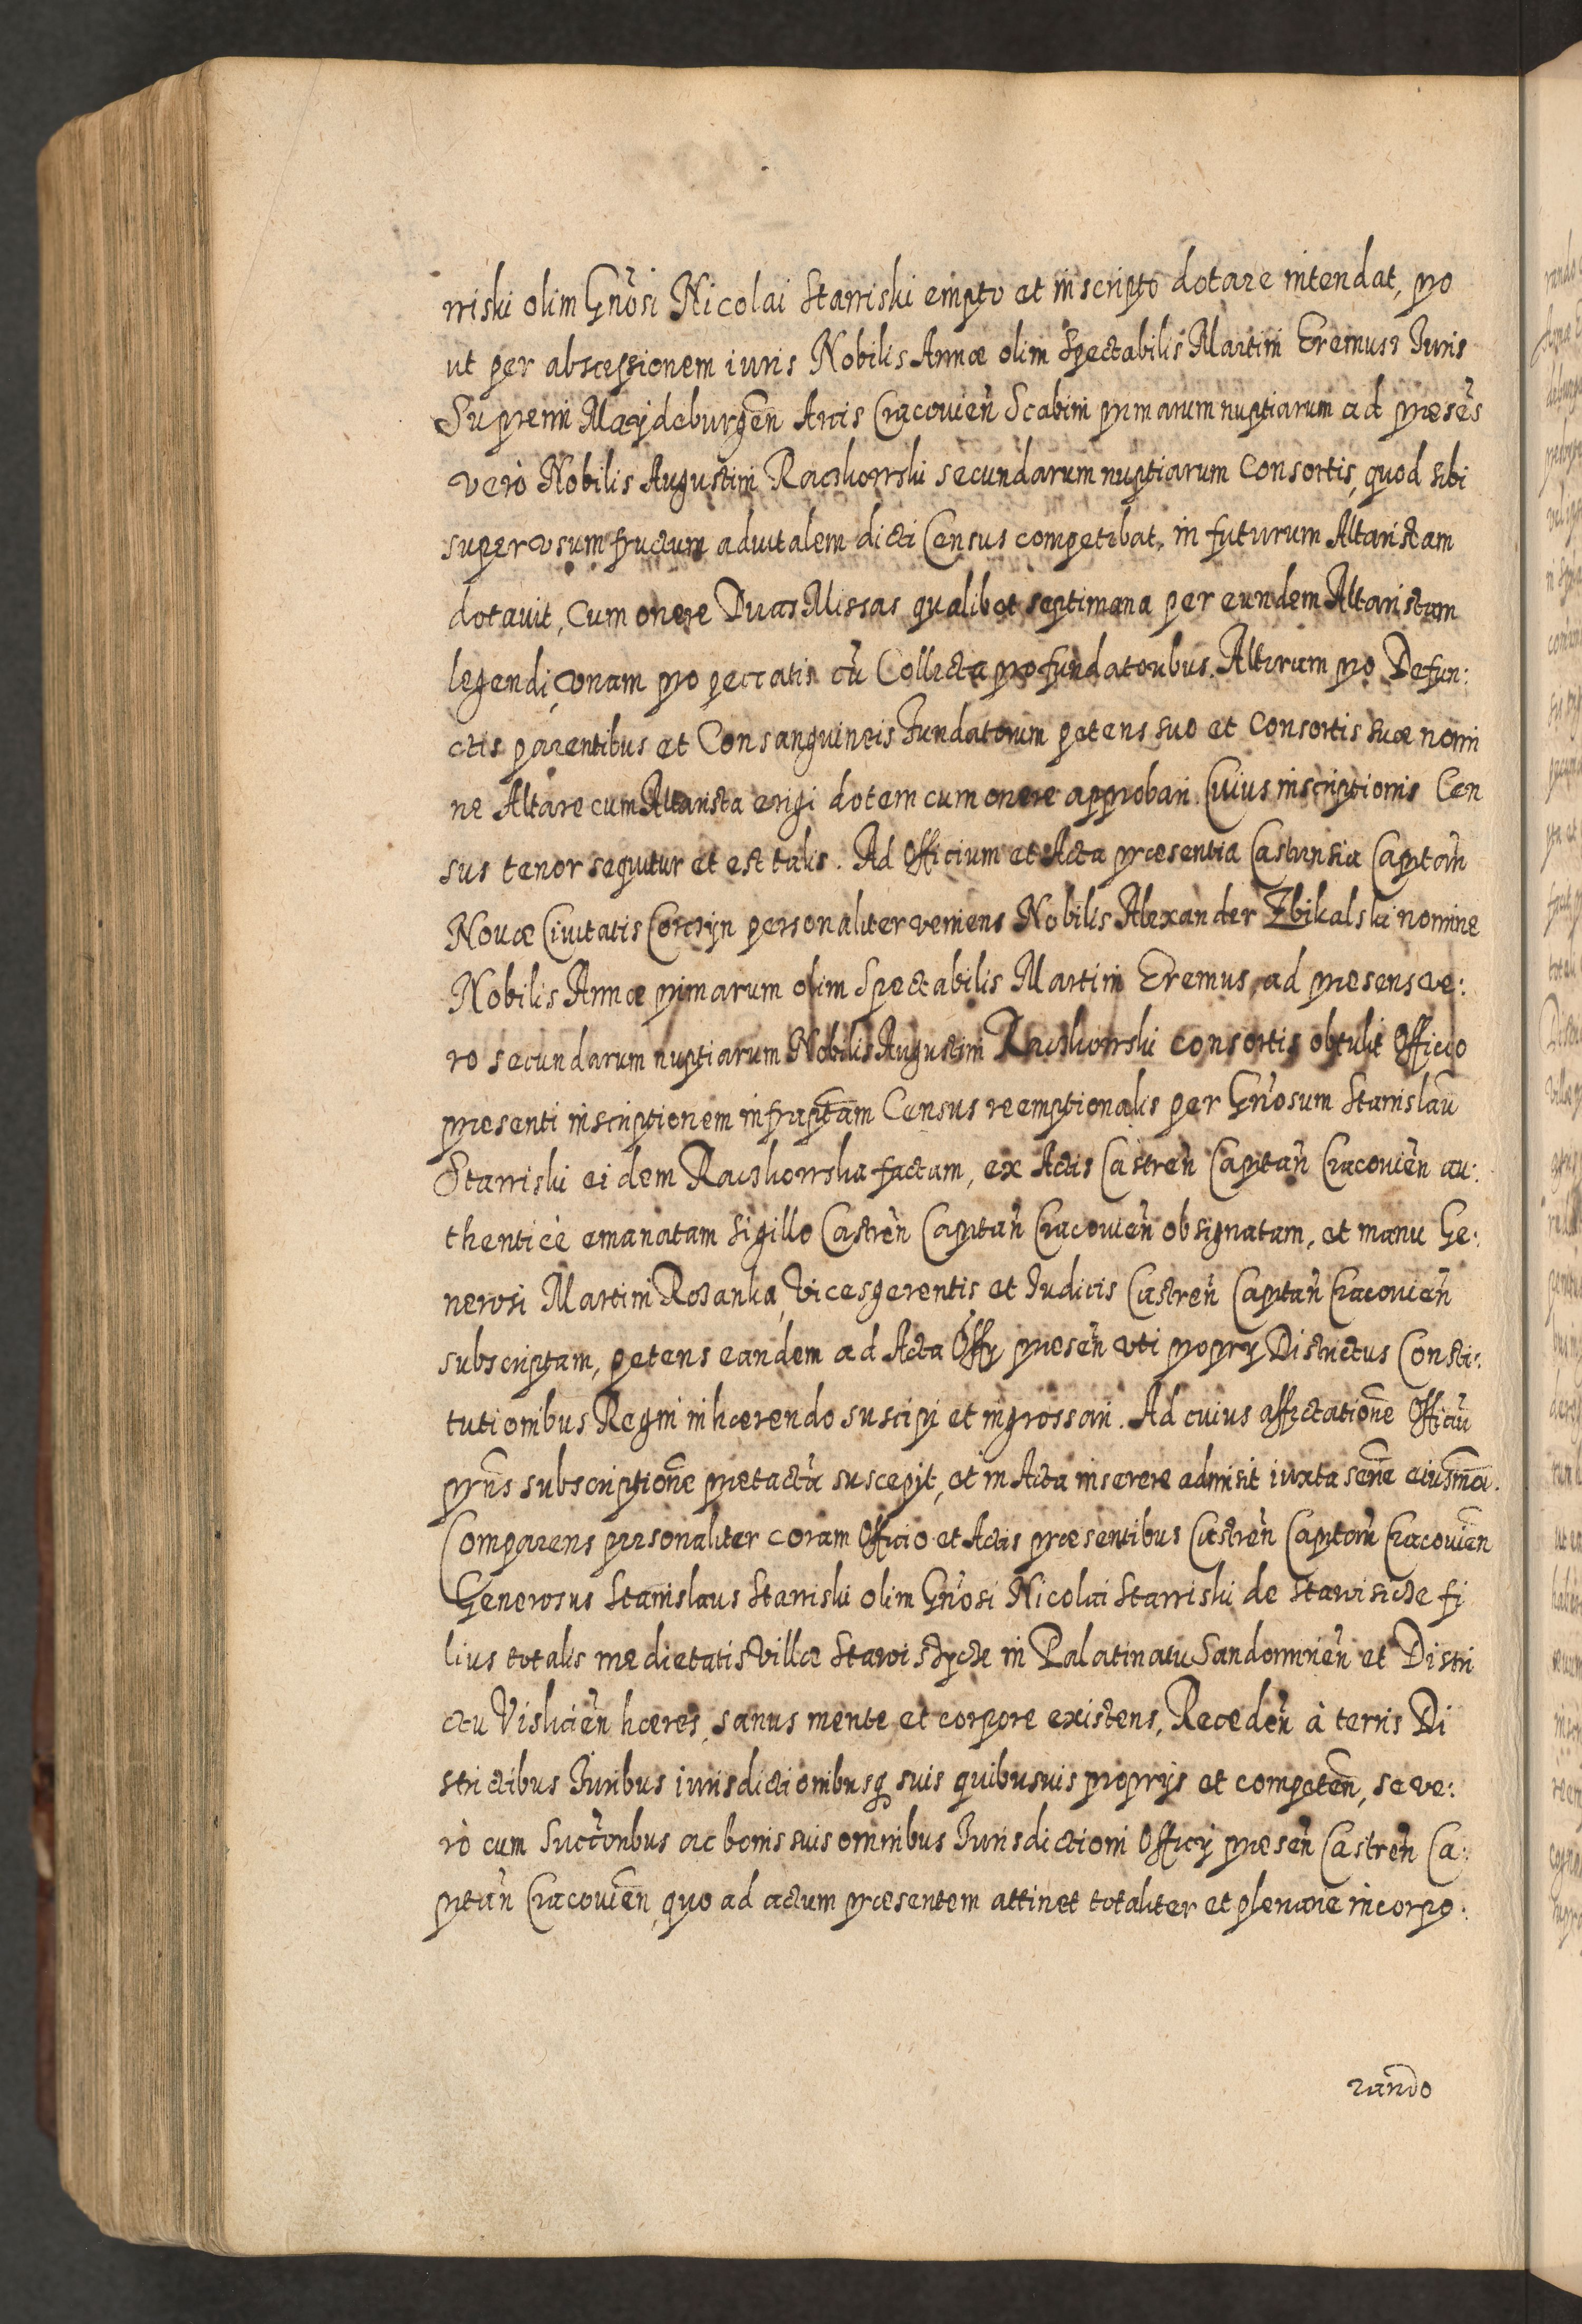 wiski olim Gn̄osi Nicolai Stawiski empto et inscripto dotare intendat, pro
ut per abscessionem iuris Nobilis Annæ olim Spectabilis Martini Eremuss Juris
Supremi Maydeburgen̄ Arcis Cracouien̄ Scabini primarum nuptiarum ad præsēs
verò Nobilis Augustini Raczkowski secundarum nuptiarum Consortis, quod sibi
super vsumfructum aduitalem dicti Census competebat, in futurum Altaristam
dotauit, Cum onere Duas Missas qualibet septimana per eundem Altaristam
legendi, vnam pro peccatis cū Collecta pro fundatoribus. Alteram pro Defun:
ctis parentibus et Consanguineis Fundatorum petens suo et Consortis suæ nomi
ne Altare cum Altarista erigi dotem cum onere approbari. Cuius inscriptionis Cen
sus tenor sequitur et est talis. Ad Officium et Acta præsentia Castrensia Capitan̄
Nouæ Ciuitatis Corczyn personaliter veniens Nobilis Alexander Zbikalski nomine
Nobilis Annæ primarum olim Spectabilis Martini Eremus, ad præsens ve:
ro secundarum nuptiarum Nobilis Augustini Raczkowski consortis obtulit Officio
præsenti inscriptionem infraptam Census reemptionalis per Gn̄osum Stanislaū
Stawiski eidem Raczkowska factam, ex Actis Castren̄ Capitan̄ Cracouien̄ au:
thenticè emanatam sigillo Castren̄ Capitan̄ Cracouien̄ obsignatam, et manu Ge:
nerosi Martini Rozanka, Vicesgerentis et Judicis Castren̄ Capitan̄ Cracouien̄
subscriptam, petens eandem ad Acta Offy præsen̄ vti propry Districtus Consti:
tutionibus Regni inhærendo suscipi et ingrossari. Ad cuius affectationē Officiū
prn̄s subscriptionē prætactā suscepit, et in Acta inserere admisit iuxta sēne eiusmōi.
Comparens personaliter coram Officio et Actis præsentibus Castren̄ Capitan̄ Cracouien̄
Generosus Stanislaus Stawiski olim Gn̄osi Nicolai Stawiski de Stawisicze fi
lius totalis medietatis Villæ Stawiszycze in Palatinatu Sandomirien̄ et Distri
ctu Vislicien̄ hæres, sanus mente et corpore existens, Receden̄ à terris Di
strictibus Juribus iurisdictionibusq suis quibusuis proprijs et competen̄, se ve:
rò cum succōribus ac bonis suis omnibus Jurisdictioni Officij præsen̄ Castren̄ Ca:
pitan̄ Cracouien̄, quo ad actum præsentem attinet totaliter et plenarie incorpo:
rando